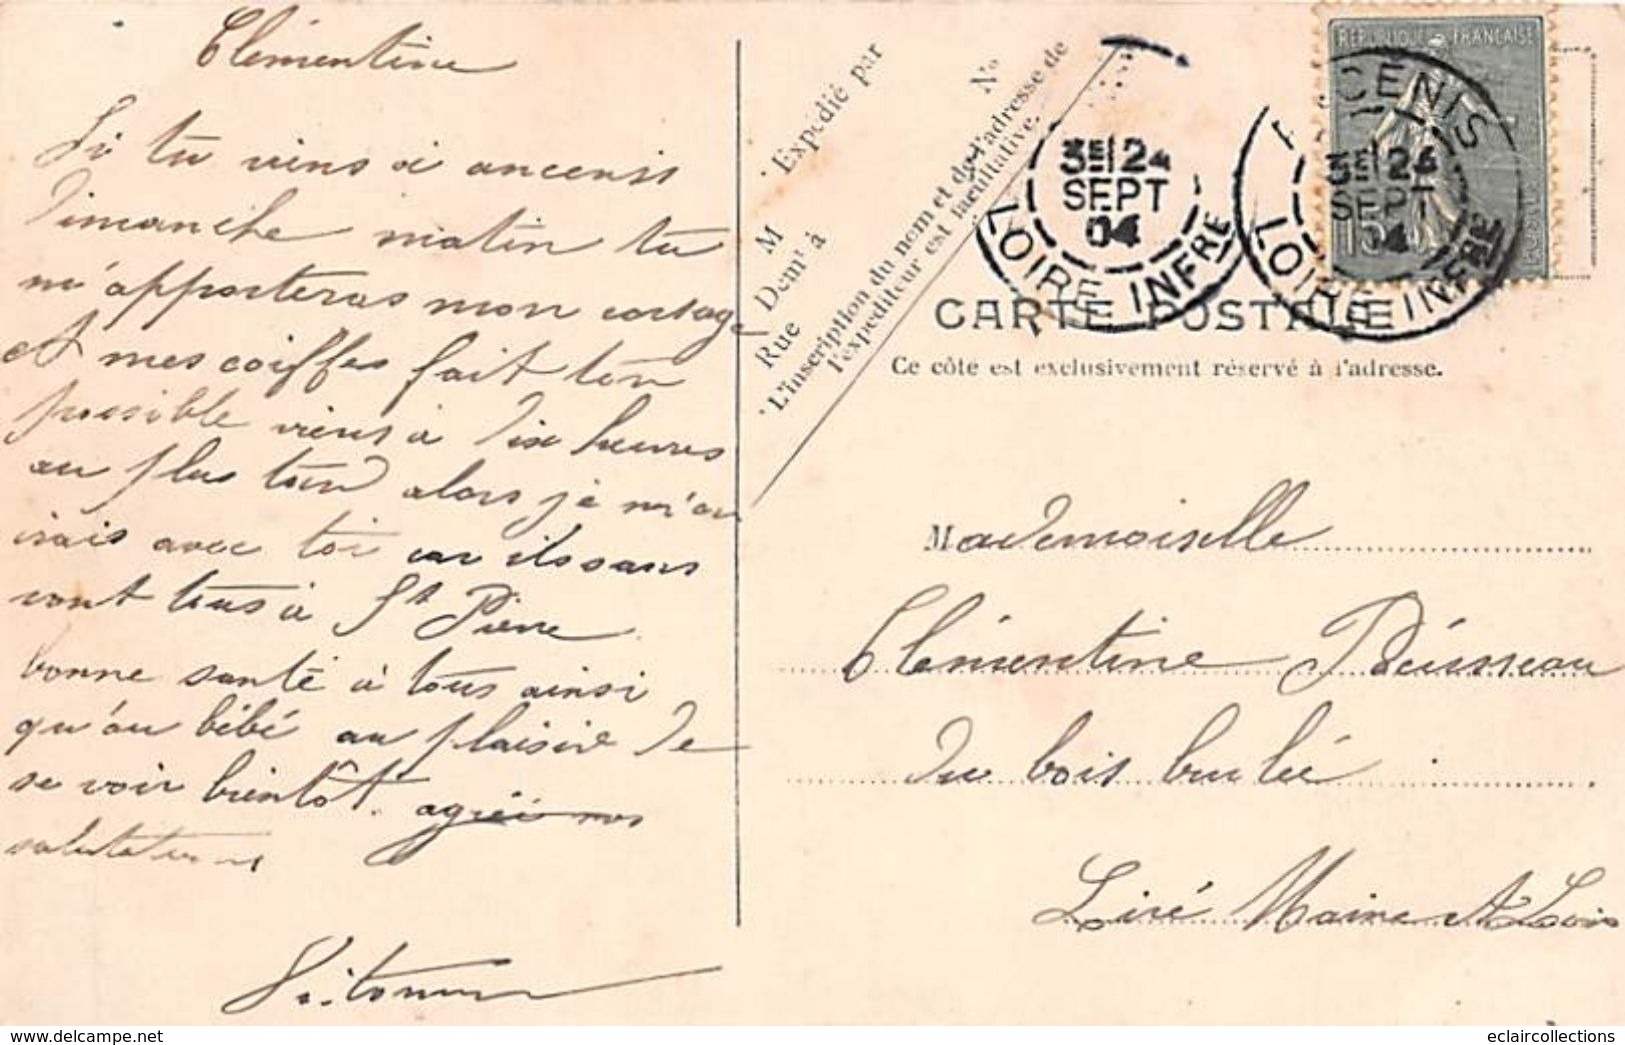 Clémentine
Si tu viens à ancenis
Dimanche matin tu
m'apporteras mon corsage
et mes coiffes fait ton
possible viens à dix heures
au plus tard alors je m'en
irais avec toi car ils sans
vont tous à St Pierre
bonne santé à tous ainsi
qu'au bébé au plaisir de
se voir bientôt. agréé nos
salutations
Expédié par
M
Demt à
Rue
No
L'inscription du nom et de l'adresse de
l'expéditeur est facultative.
3E 24
SEPT
04
LOIRE INFRE
REPUBLIQUE FRANÇAISE
POSTES
15c
ANCENIS
3E 24
SEPT
04
LOIRE INFRE
CARTE POSTALE
Ce côte est exclusivement réservé à l'adresse.
Mademoiselle
Clémentine
du bois brulé
Liré Maine et Loire
www.delcampe.net
eclaircollections